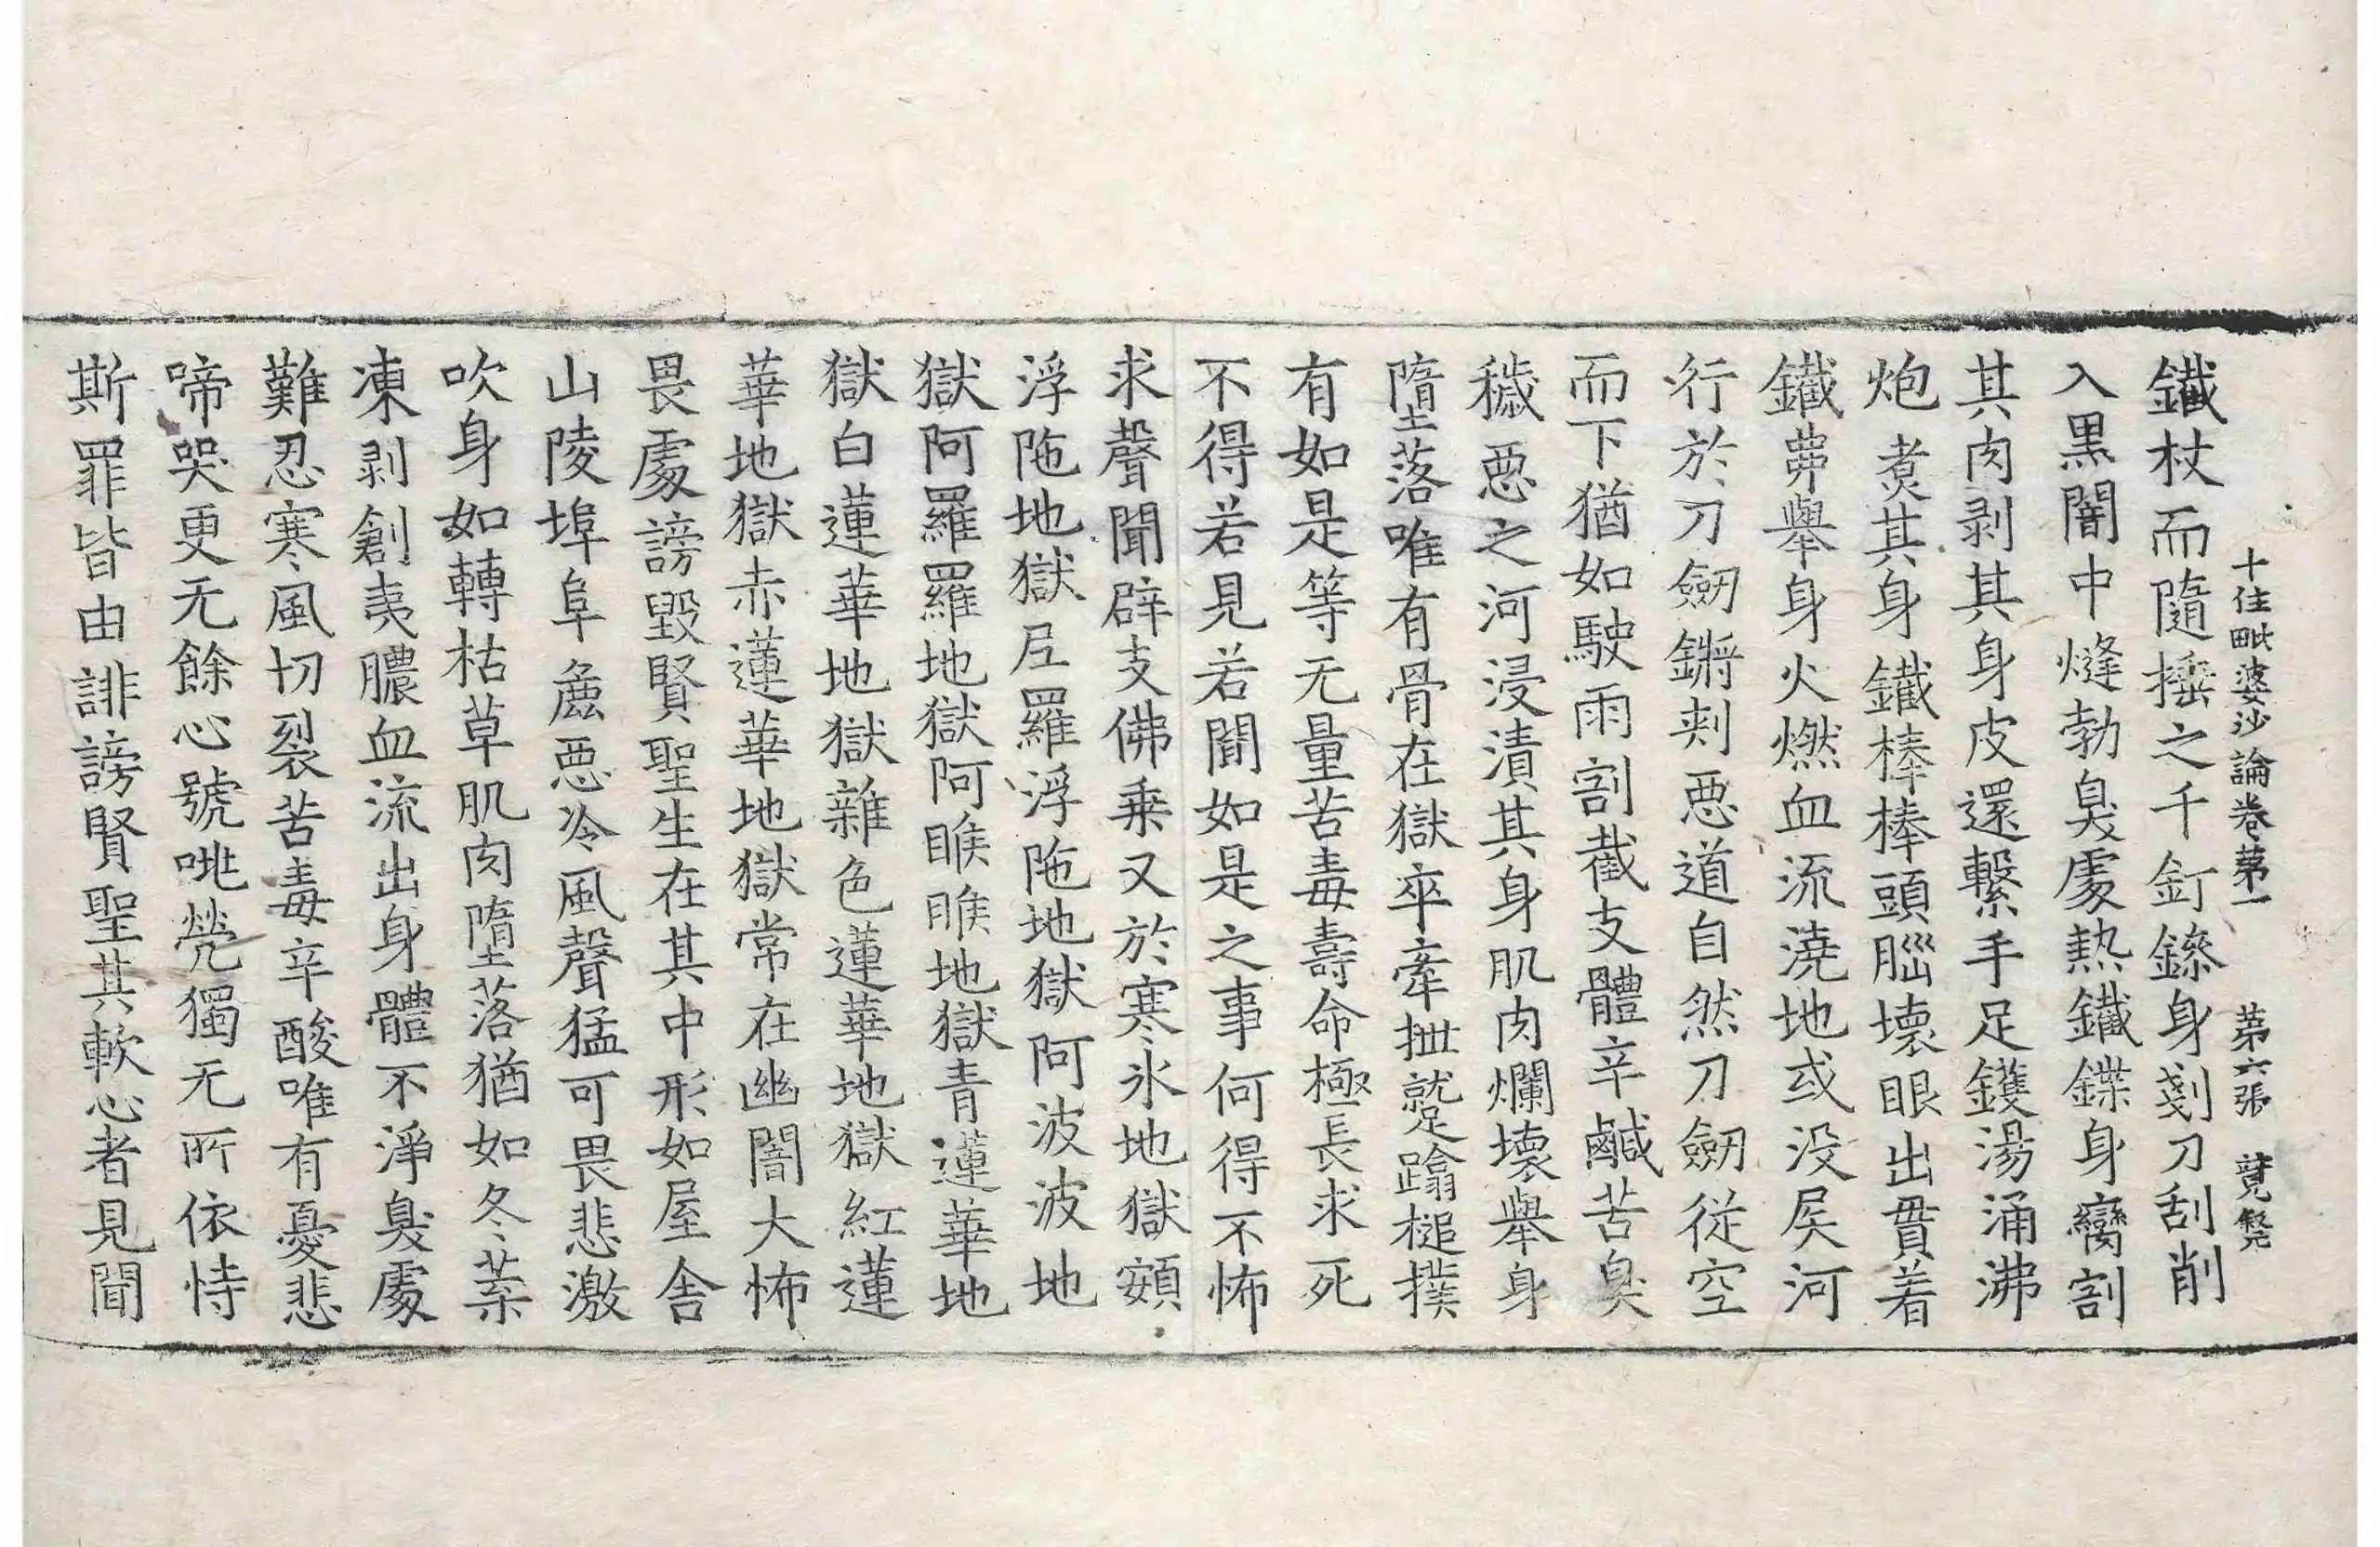 十住毗婆沙論卷第一 第六張 覓髠
鐵杖而隨捶之千釘鎍身剗刀刮削
入黑闇中熢勃臭處熱鐵鍱身臠割
其肉剥其身皮還繫手足鑊湯涌沸
炮煑其身鐵棒棒頭腦壞眼出貫着
鐵丳舉身火燃血流澆地或没屎河
行於刀劒鏘刾惡道自然刀劒從空
而下猶如駛雨割截支體辛鹹苦臭
穢惡之河浸漬其身肌肉爛壞舉身
墮落唯有骨在獄卒牽抴蹵蹹槌撲
有如是等无量苦毒壽命極長求死
不得若見若聞如是之事何得不怖
求聲聞辟支佛乗又於寒氷地獄頞
浮陁地獄尼羅浮陁地獄阿波波地
獄阿羅羅地獄阿睺睺地獄青蓮華地
獄白蓮華地獄雜色蓮華地獄紅蓮
華地獄赤蓮華地獄常在幽闇大怖
畏處謗毀賢聖生在其中形如屋舍
山陵埠阜麁惡冷風聲猛可畏悲激
吹身如轉枯草肌肉墮落猶如冬葉
凍剥創夷膿血流出身體不淨臭處
難忍寒風切裂苦毒辛酸唯有憂悲
啼哭更无餘心號咷煢獨无所依恃
斯罪皆由誹謗賢聖其軟心者見聞